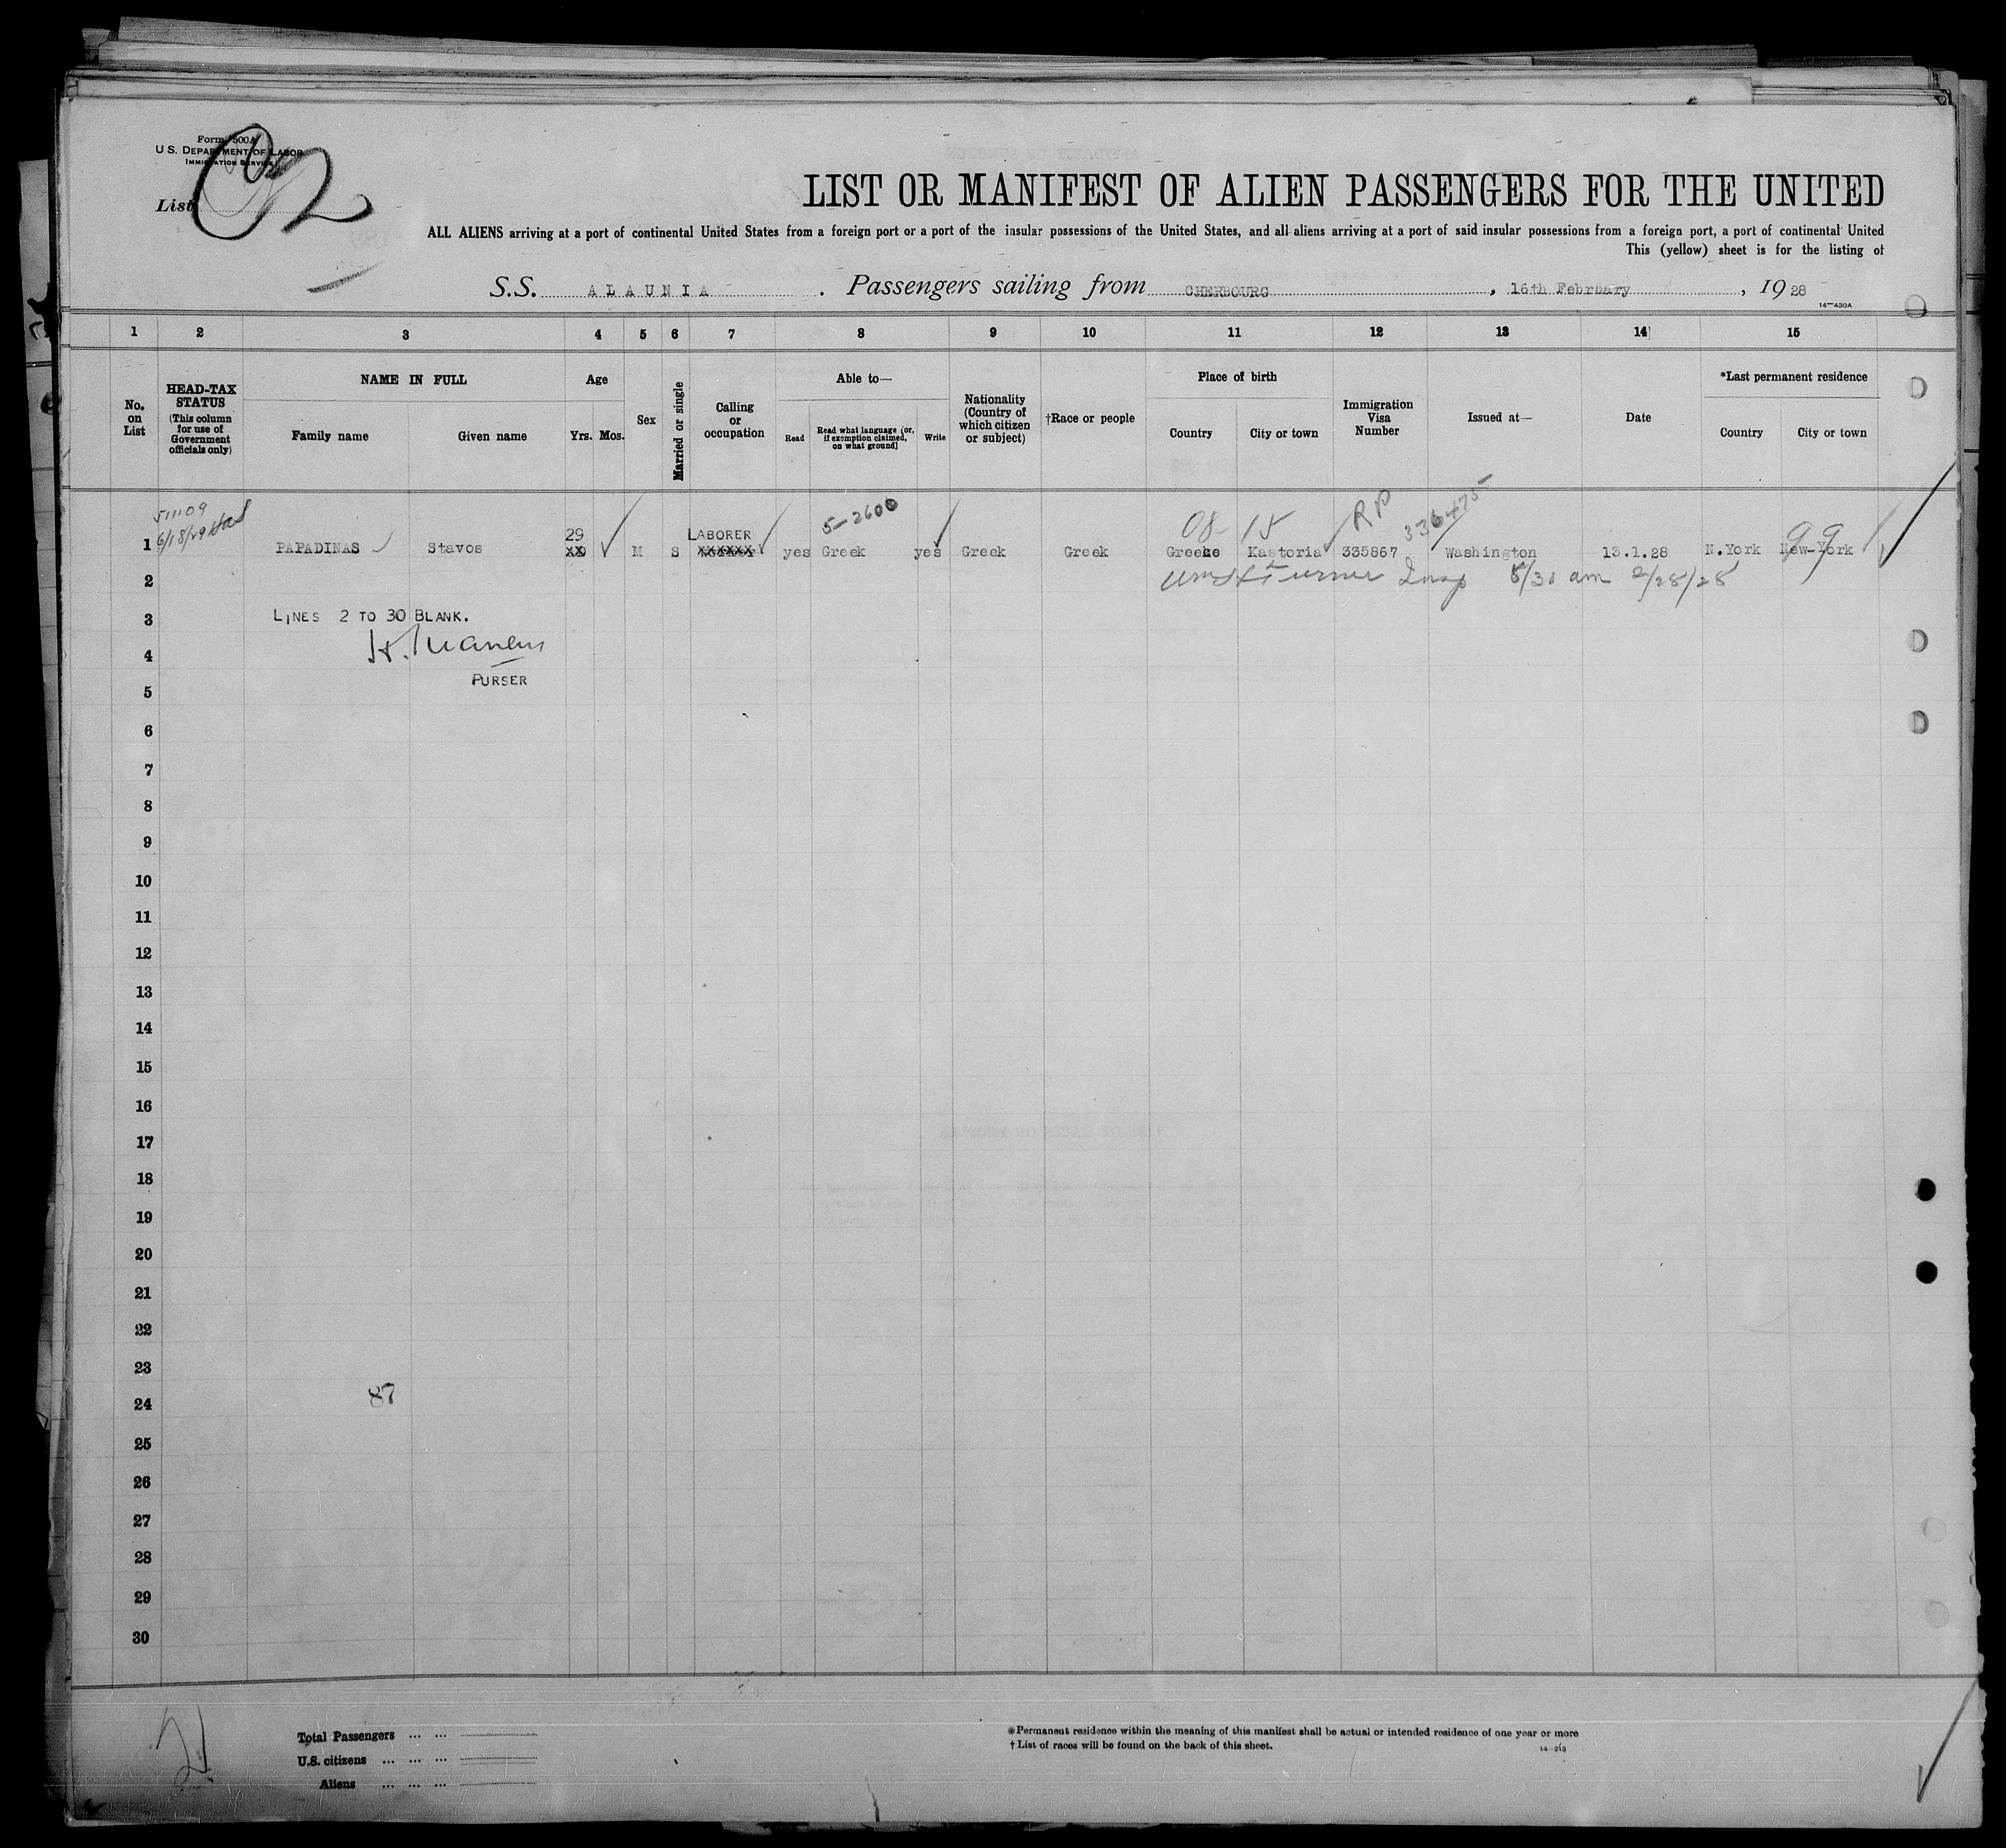 Form 500A
U.S. DEPARTMENT OF LABOR
IMMIGRATION SERVICE
List 2
LIST OR MANIFEST OF ALIEN PASSENGERS FOR THE UNITED
ALL ALIENS arriving at a port of continental United States from a foreign port or a port of the insular possessions of the United States, and all aliens arriving at a port of said insular possessions from a foreign port, a port of continental United
This (yellow) sheet is for the listing of
S.S. ALAUNIA . Passengers sailing from CHERBOURG , 16th February , 19 28
14—430A
1 2 3 4 5 6 7 8 9 10 11 12 13 14 15
No. on List
HEAD-TAX STATUS (This column for use of Government officials only)
NAME IN FULL
Family name Given name
Age
Yrs. Mos.
Sex
Married or single
Calling or occupation
Able to—
Read Read what language (or, if exemption claimed, on what ground) Write
Nationality (Country of which citizen or subject)
†Race or people
Place of birth
Country City or town
Immigration Visa Number
Issued at—
Date
*Last permanent residence
Country City or town
511109
6/18/29
5-2600
08 15 RP 336475 99
29 LABORER
1 PAPADINAS Stavos XX M S XXXXXX yes Greek yes Greek Greek Greece Kastoria 335867 Washington 13.1.28 N.York New-York
2 Turner Insp 8/30 am 2/28/28
3 LINES 2 TO 30 BLANK.
4
PURSER
5
6
7
8
9
10
11
12
13
14
15
16
17
18
19
20
21
22
23
24 87
25
26
27
28
29
30
Total Passengers ... ...
U.S. citizens ... ... ...
Aliens ... ... ...
*Permanent residence within the meaning of this manifest shall be actual or intended residence of one year or more
† List of races will be found on the back of this sheet.
14—213